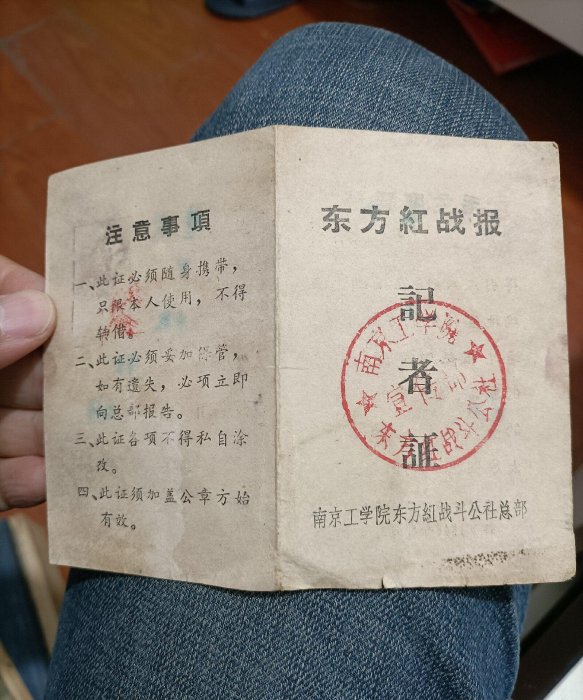 注意事項
一、此证必须随身携带，
只限本人使用，不得
转借。
二、此证必须妥加保管，
如有遗失，必项立即
向总部报告。
三、此证各项不得私自涂
改。
四、此证须加盖公章方始
有效。
东方紅战报
記
者
証
南京工学院
东方红战斗公社
宣传部
南京工学院东方紅战斗公社总部